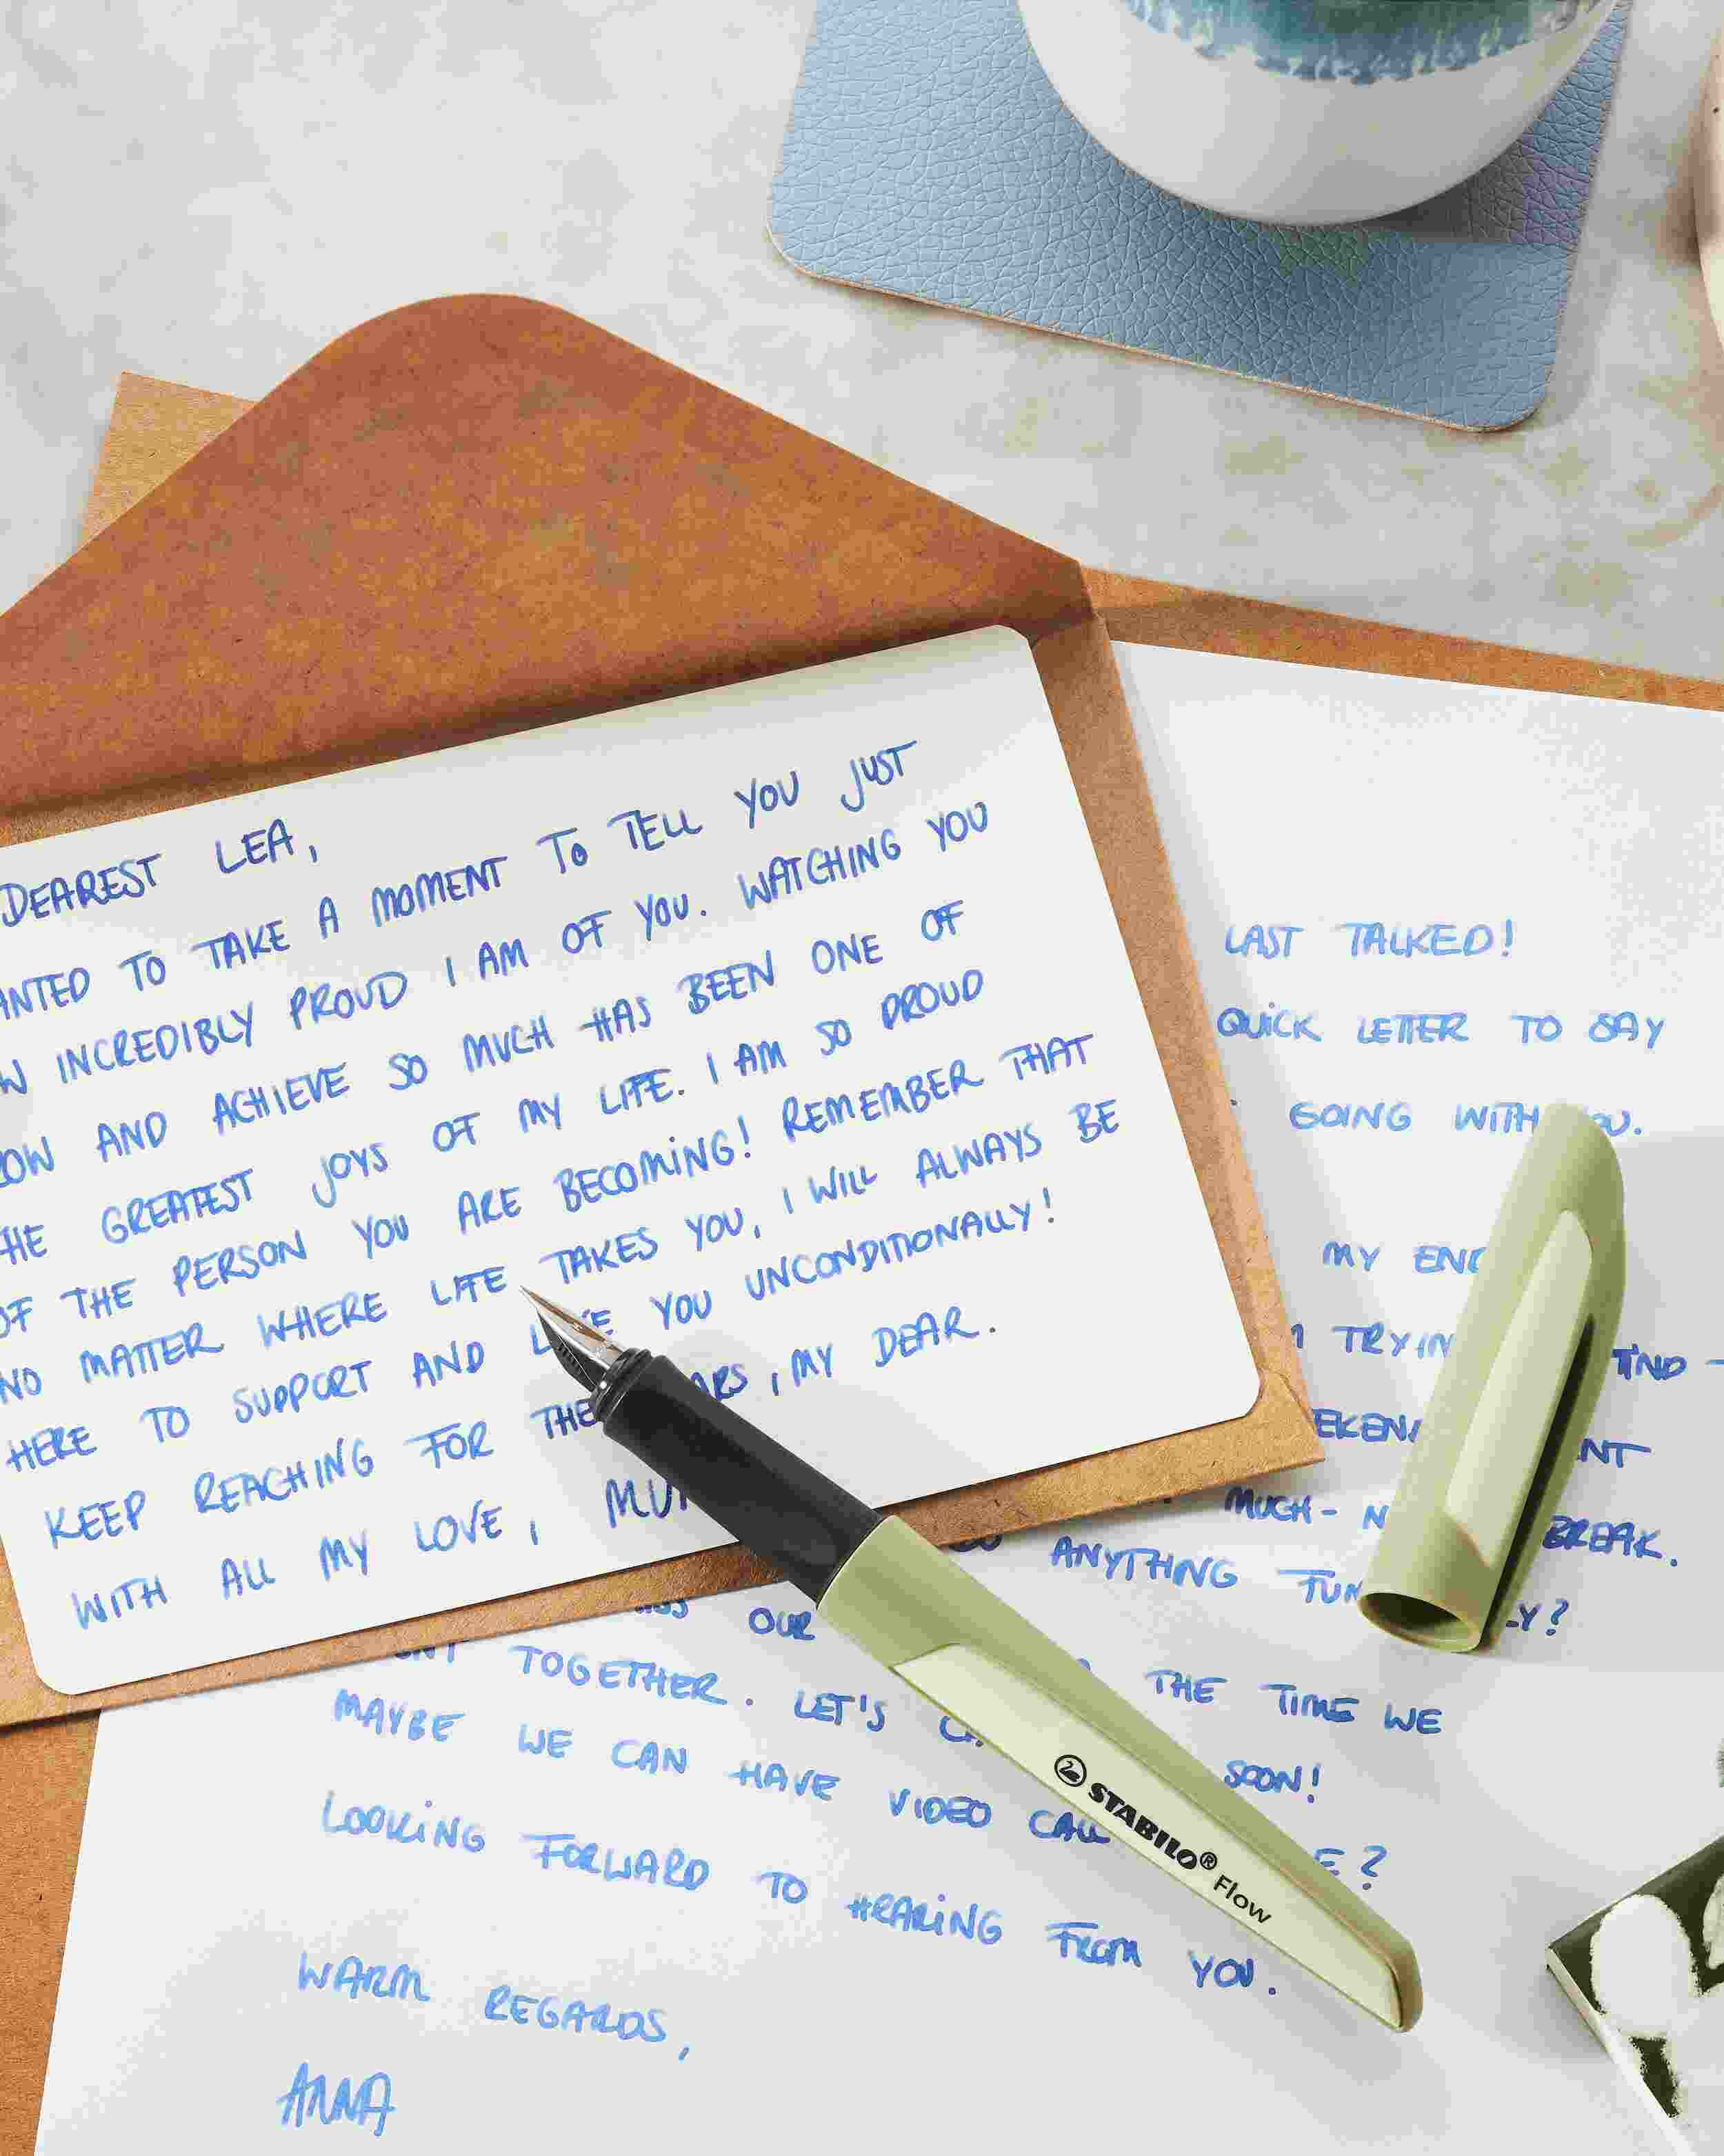 DEAREST LEA,
ANTED TO TAKE A MOMENT TO TELL YOU JUST
W INCREDIBLY PROUD I AM OF YOU. WATCHING YOU
OW AND ACHIEVE SO MUCH HAS BEEN ONE OF
HE GREATEST JOYS OF MY LIFE. I AM SO PROUD
OF THE PERSON YOU ARE BECOMING! REMEMBER THAT
NO MATTER WHERE LIFE TAKES YOU, I WILL ALWAYS BE
HERE TO SUPPORT AND L E YOU UNCONDITIONALLY!
KEEP REACHING FOR THE ARS, MY DEAR.
WITH ALL MY LOVE, MU
LAST TALKED!
QUICK LETTER TO SAY
GOING WITH OU.
MY END
TRYIN IND
EKEN NT
MUCH- N BREAK.
ANYTHING FUN LY?
ISS OUR THE TIME WE
NT TOGETHER. LET'S C SOON!
MAYBE WE CAN HAVE VIDEO CALL E?
LOOKING FORWARD TO HRARING FROM YOU.
WARM REGARDS,
ANNA
STABILO® Flow